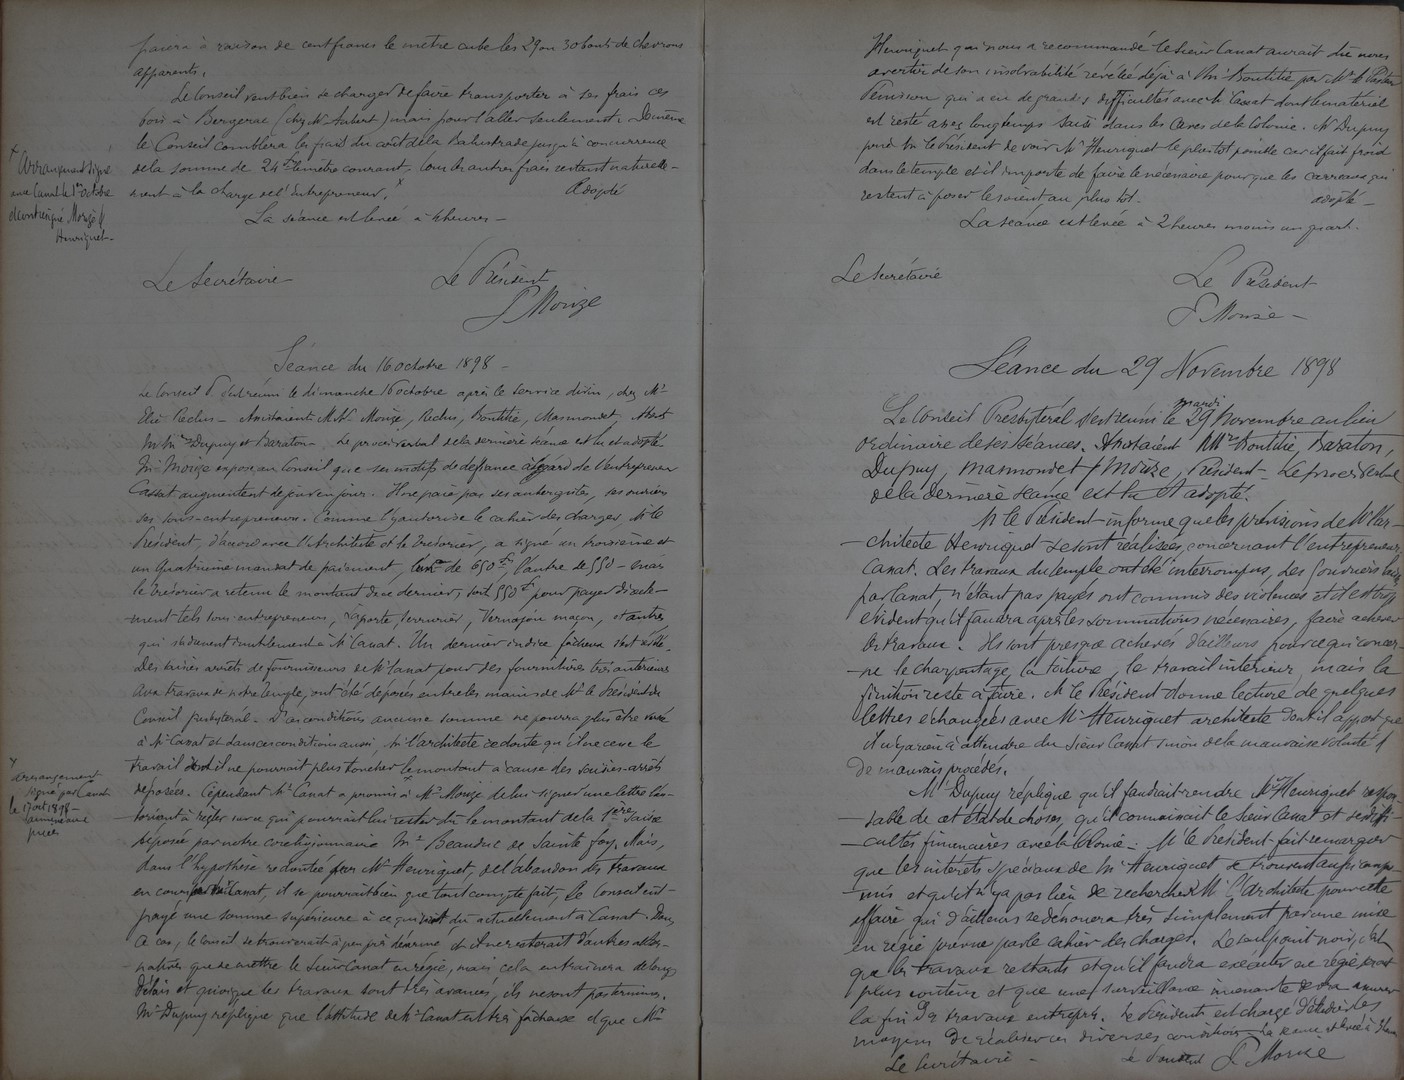 paiera à raison de cent francs le mètre cube les 29 ou 30 bouts de chevrons
apparents.
Le Conseil veut bien se charger de faire transporter à ses frais ces
bois à Bergerac (chez Mr Aubert) mais pour l'aller seulement. De même
le Conseil comblera les frais du coût de la Balustrade jusqu'à concurrence
de la somme de 24 frs le mètre courant, tous les autres frais restant naturelle-
ment à la charge de l'Entrepreneur. x Adopté
La séance est levée à 4 heures –
x Arrangement signé
avec Canat le 1er octobre
et contresigné Mouze &
Henriquet –
Le Secrétaire – Le Président
P Mouze
Séance du 16 octobre 1898 –
Le Conseil P. s'est réuni le dimanche 16 octobre après le service divin, chez Mr
Elie Reclus – Assistaient M.M. Mouze, Reclus, Bontitié, Masmondet,
MM Dupuy et Baraton – Le procès verbal de la dernière séance est lu et adopté
Mr Mouze expose au Conseil que ses motifs de défiance à l'égard de l'entrepreneur
Canat augmentent de jour en jour. Il ne paie pas ses ouvriers
ses sous-entrepreneurs. Comme l'y autorise le cahier des charges, M. le
Président, d'accord avec l'Architecte et le Trésorier, a signé un troisième et
un quatrième mandat de paiement, l'un de 650 fs, l'autre de 550 – mais
le Trésorier a retenu le montant de ce dernier, soit 550 f pour payer directe-
ment tels sous-entrepreneurs, Laporte serrurier, Vernajou maçon, et autres
qui réclament inutilement à Mr Canat. Un dernier indice fâcheux
Des saisies arrêts de fournisseurs de Mr Canat pour des fournitures très antérieures
aux travaux de notre temple, ont été déposés entre les mains de Mr le Président du
Conseil presbytéral – D'ici conditions aucune somme ne pourra plus être versée
à Mr Canat et dans ces conditions aussi Mr l'architecte redoute qu'il ne cesse le
travail dont il ne pourrait plus toucher le montant à cause des saisies-arrêts
x arrangement
signé par Canat
le 17 oct 1898 –
déposées. Cependant Mr Canat a promis à Mr Mouze de lui signer une lettre l'au-
torisant à régler sur ce qui pourrait lui rester dû le montant de la 1ère saisie
déposée par notre coreligionnaire Mr Beauduc de Sainte foy. Mais,
dans l'hypothèse redoutée par Mr Henriquet, de l'abandon des travaux
en cours par Canat, il se pourrait bien que tout compte fait, le Conseil eut
payé une somme supérieure à ce qui est dû actuellement à Canat. Dans
ce cas, le Conseil se trouverait à peu près désarmé et il ne resterait d'autres alter-
natives que de mettre le Sieur Canat en régie, mais cela entraînera de longs
délais et quoique les travaux sont très avancés, ils ne sont pas terminés.
Mr Dupuy réplique que l'attitude de Mr Canat est très fâcheuse et que Mr
Henriquet qui nous a recommandé le Sieur Canat aurait dû nous
avertir de son insolvabilité révélée déjà à Mr Bontitié par Mr le Pasteur
qui a eu de grandes difficultés avec Mr Canat dont le matériel
est resté assez longtemps saisi dans les caves de la Colonie. Mr Dupuy
prie Mr le Président de voir Mr Henriquet le plus tôt possible car il fait froid
dans le temple et il importe de faire le nécessaire pour que les carreaux qui
restent à poser le soient au plus tôt. adopté –
La séance est levée à 2 heures moins un quart.
Le Secrétaire Le Président
P Mouze –
Séance du 29 Novembre 1898
Le Conseil Presbytéral s'est réuni le mardi 29 Novembre au lieu
ordinaire de ses séances. Assistaient MMrs Bontitié, Baraton,
Dupuy, Masmondet & Mouze, Président – Le procès verbal
de la dernière séance est lu et adopté.
M le Président informe que les prévisions de Mr l'ar-
chitecte Henriquet se sont réalisées, concernant l'entrepreneur
Canat. Les travaux du temple ont été interrompus, les ouvriers
par Canat, n'étant pas payés ont commis des violences et il est trop
évident qu'il faudra après les sommations nécessaires, faire achever
les travaux. Ils sont presque achevés d'ailleurs pour ce qui concer-
ne le charpentage, la toiture, le travail intérieur, mais la
finition reste à faire. M le Président donne lecture de quelques
lettres échangées avec Mr Henriquet architecte dont il appert que
il n'y a rien à attendre du Sieur Canat sinon de la mauvaise volonté &
de mauvais procédés.
Mr Dupuy réplique qu'il faudrait rendre Mr Henriquet respon-
sable de cet état de choses, qu'il connaissait le Sieur Canat et ses diffi-
cultés financières avec la Colonie. M le Président fait remarquer
que les intérêts spéciaux de Mr Henriquet se trouvent aussi compro-
mis et qu'il n'y a pas lieu de rechercher Mr l'Architecte pour cette
affaire qui d'ailleurs se dénouera très simplement par une mise
en régie prévue par le cahier des charges. Le seul point noir, c'est
que les travaux restants et qu'il faudra exécuter en régie
plus coûteux et que une surveillance devra assurer
la fin des travaux entrepris. Le Président est chargé d'étudier les
moyens de réaliser ces diverses conditions. La séance est levée à
Le Secrétaire – Le Président P Mouze